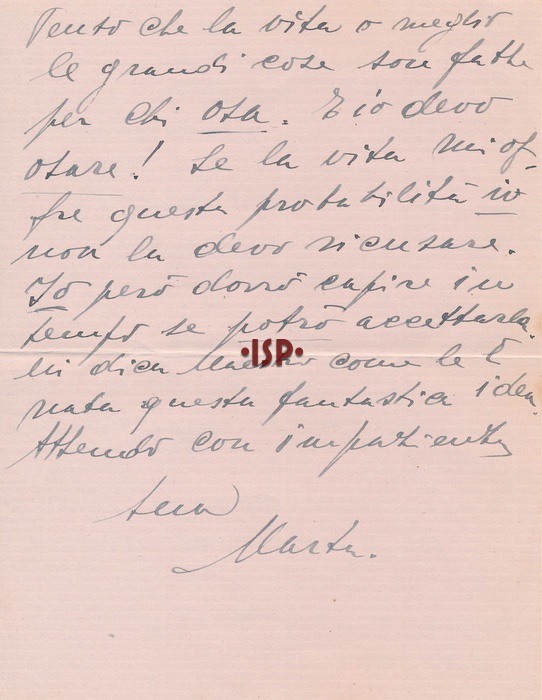 Penso che la vita o meglio
le grandi cose son fatte
per chi osa. E io devo
osare! Se la vita mi of-
fre questa probabilità io
non la devo ricusare.
Io però dovrò capire in
tempo se potrò accettarla.
Mi dica Maestro come le è
·ISP·
nata questa fantastica idea.
Attendo con impazienza
sua
Marta.